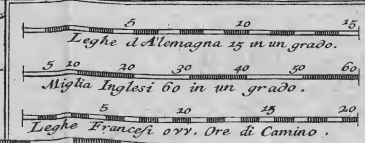 5 10 15
Leghe d'Alemagna 15 in un grado.
5 10 20 30 40 50 60
Miglia Inglesi 60 in un grado.
5 10 15 20
Leghe Francesi ovv. Ore di Camino.